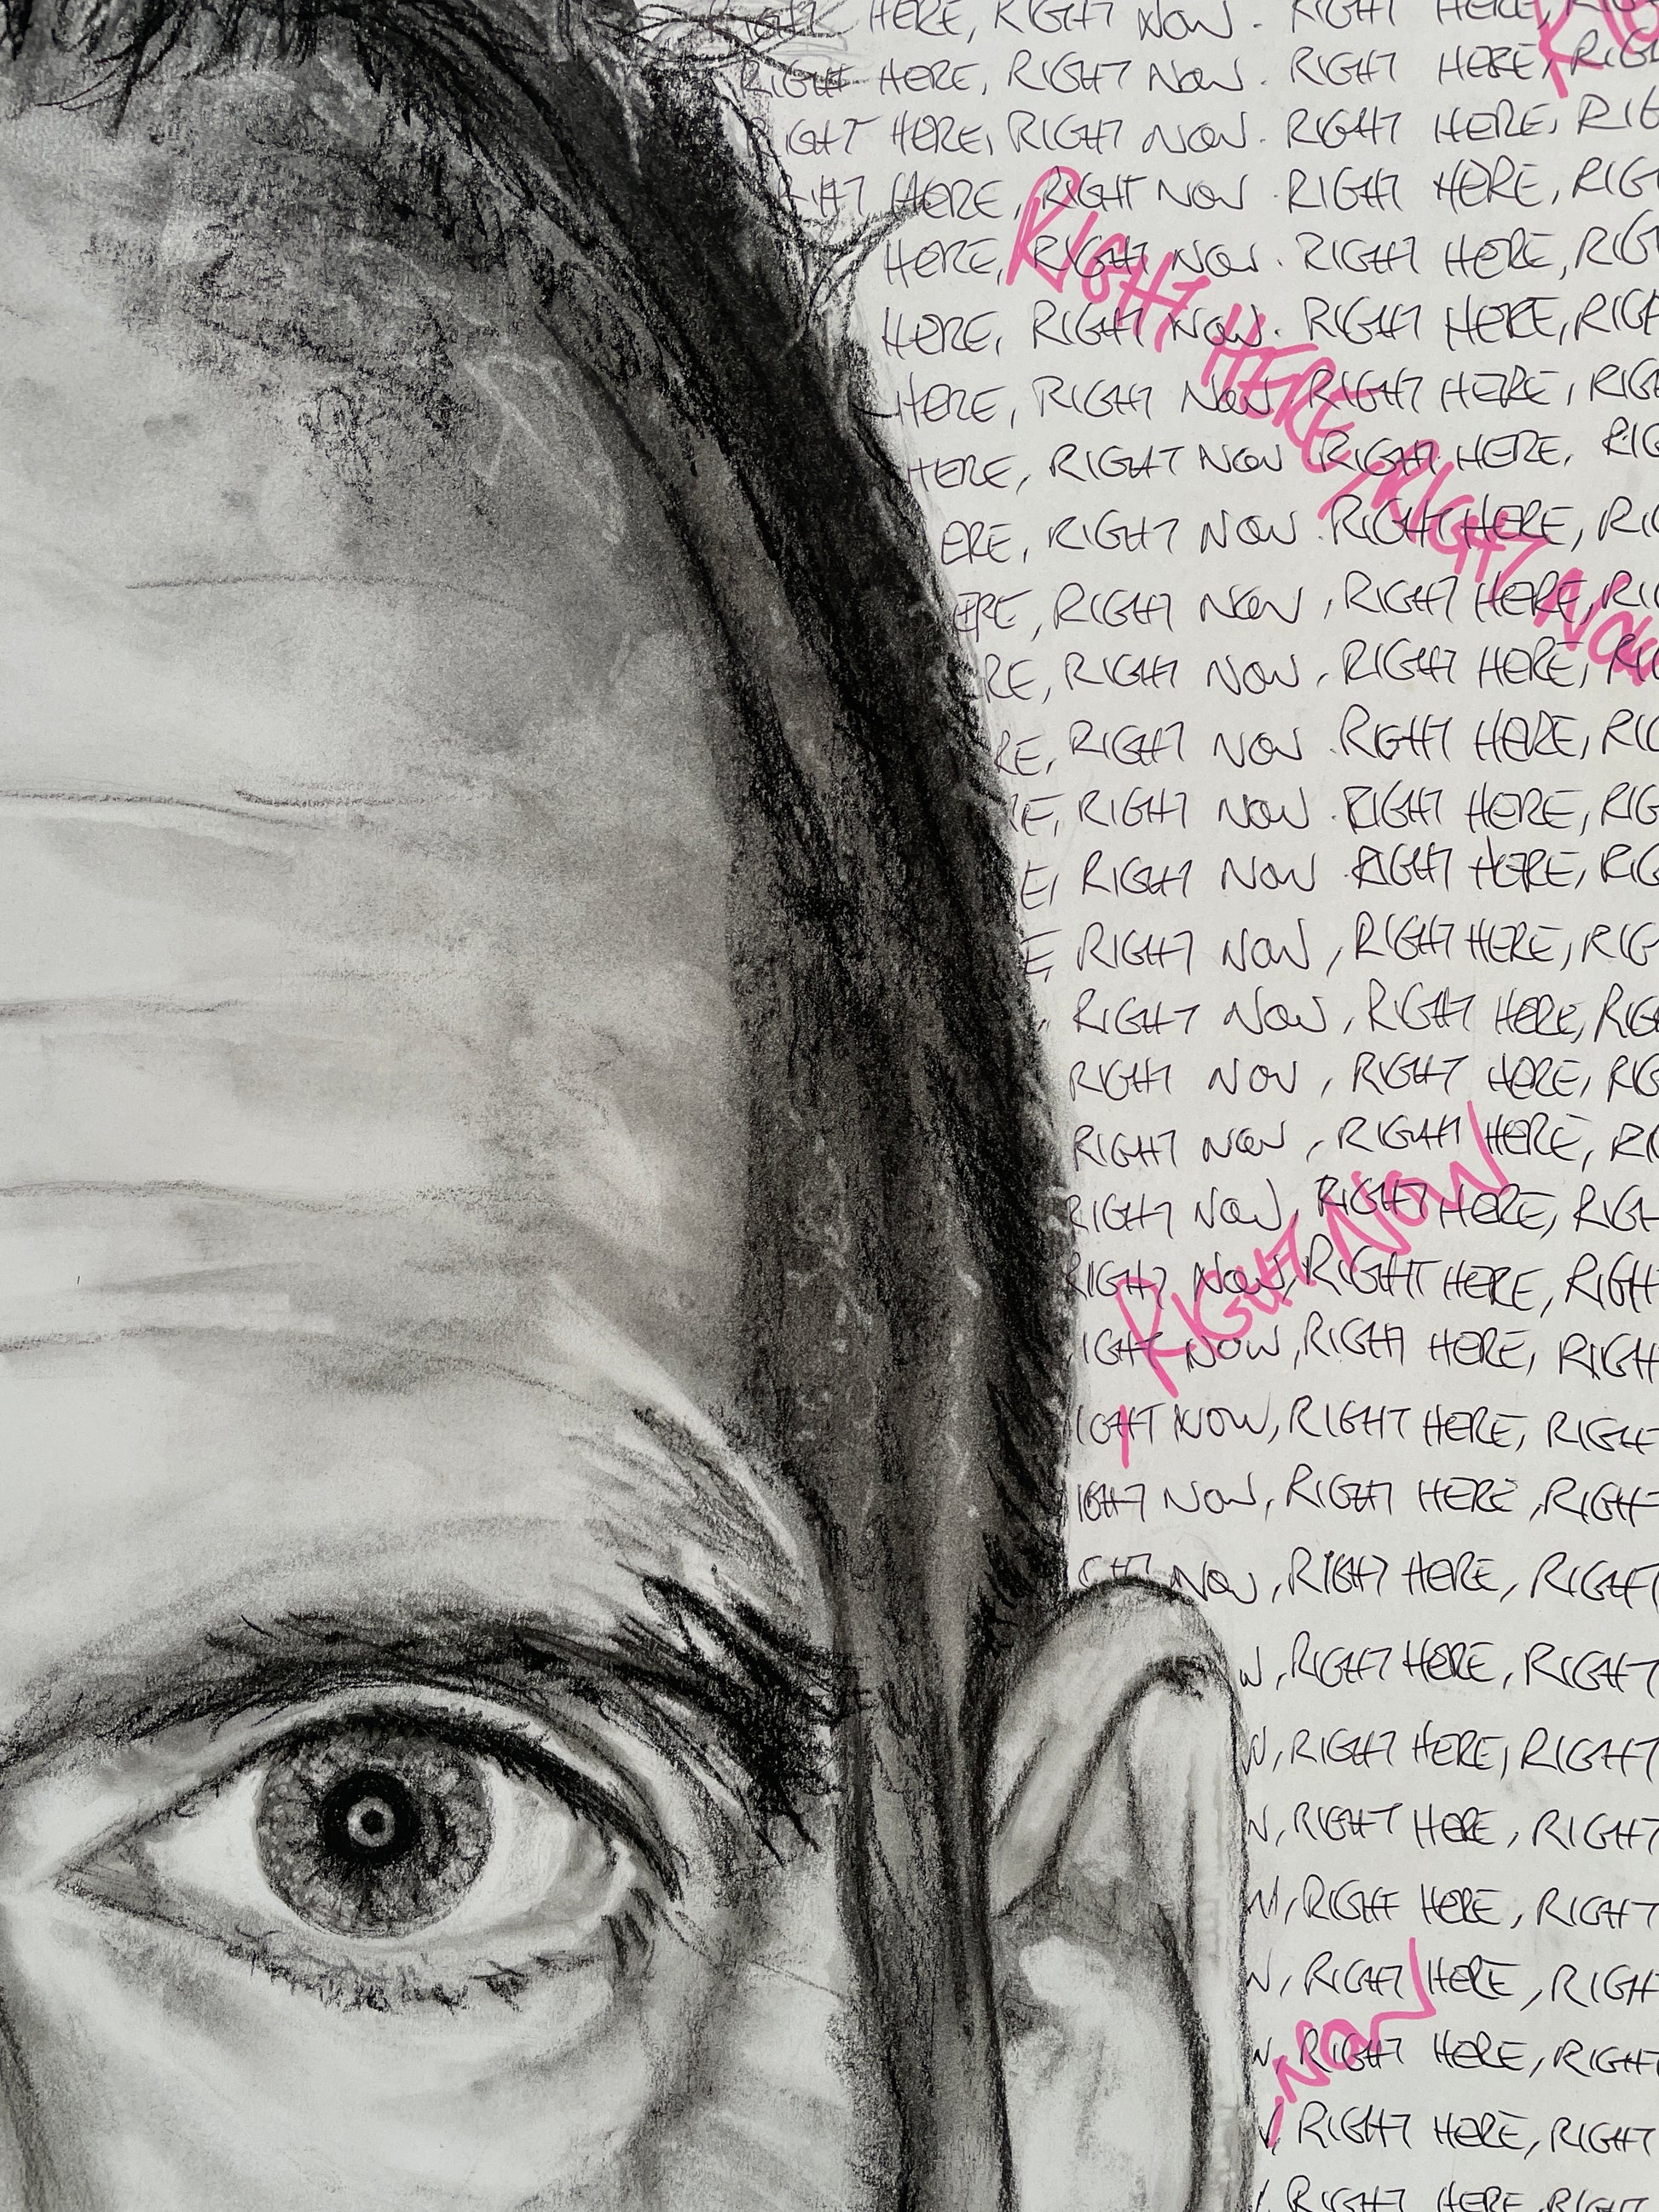 HERE, RIGHT NOW. RIGHT HERE,
RIGHT HERE, RIGHT NOW. RIGHT HERE, RIG
IGHT HERE, RIGHT NOW. RIGHT HERE, RIG
HERE, RIGHT NOW. RIGHT HERE, RIG
HERE, RIGHT NOW. RIGHT HERE, RIG
HERE, RIGHT NOW. RIGHT HERE, RIG
HERE, RIGHT NOW. RIGHT HERE, RIG
HERE, RIGHT NOW. RIGHT HERE, RIG
ERE, RIGHT NOW. RIGHT HERE, RIG
ERE, RIGHT NOW, RIGHT HERE, RIG
RE, RIGHT NOW, RIGHT HERE, RIG
RE, RIGHT NOW. RIGHT HERE, RIG
E, RIGHT NOW. RIGHT HERE, RIG
E, RIGHT NOW. RIGHT HERE, RIG
E, RIGHT NOW, RIGHT HERE, RIG
, RIGHT NOW, RIGHT HERE, RIG
RIGHT NOW, RIGHT HERE, RIG
RIGHT NOW, RIGHT HERE, RI
RIGHT NOW, RIGHT HERE, RIGH
RIGHT NOW, RIGHT HERE, RIGH
IGHT NOW, RIGHT HERE, RIGH
IGHT NOW, RIGHT HERE, RIGH
IGHT NOW, RIGHT HERE, RIGH
GHT NOW, RIGHT HERE, RIGHT
W, RIGHT HERE, RIGHT
W, RIGHT HERE, RIGHT
W, RIGHT HERE, RIGHT
W, RIGHT HERE, RIGHT
W, RIGHT HERE, RIGH
W, RIGHT HERE, RIGHT
W, RIGHT HERE, RIGHT
RIGHT HERE, RIGHT
RIGHT HERE, RIGHT NOW
RIGHT NOW
, NOW